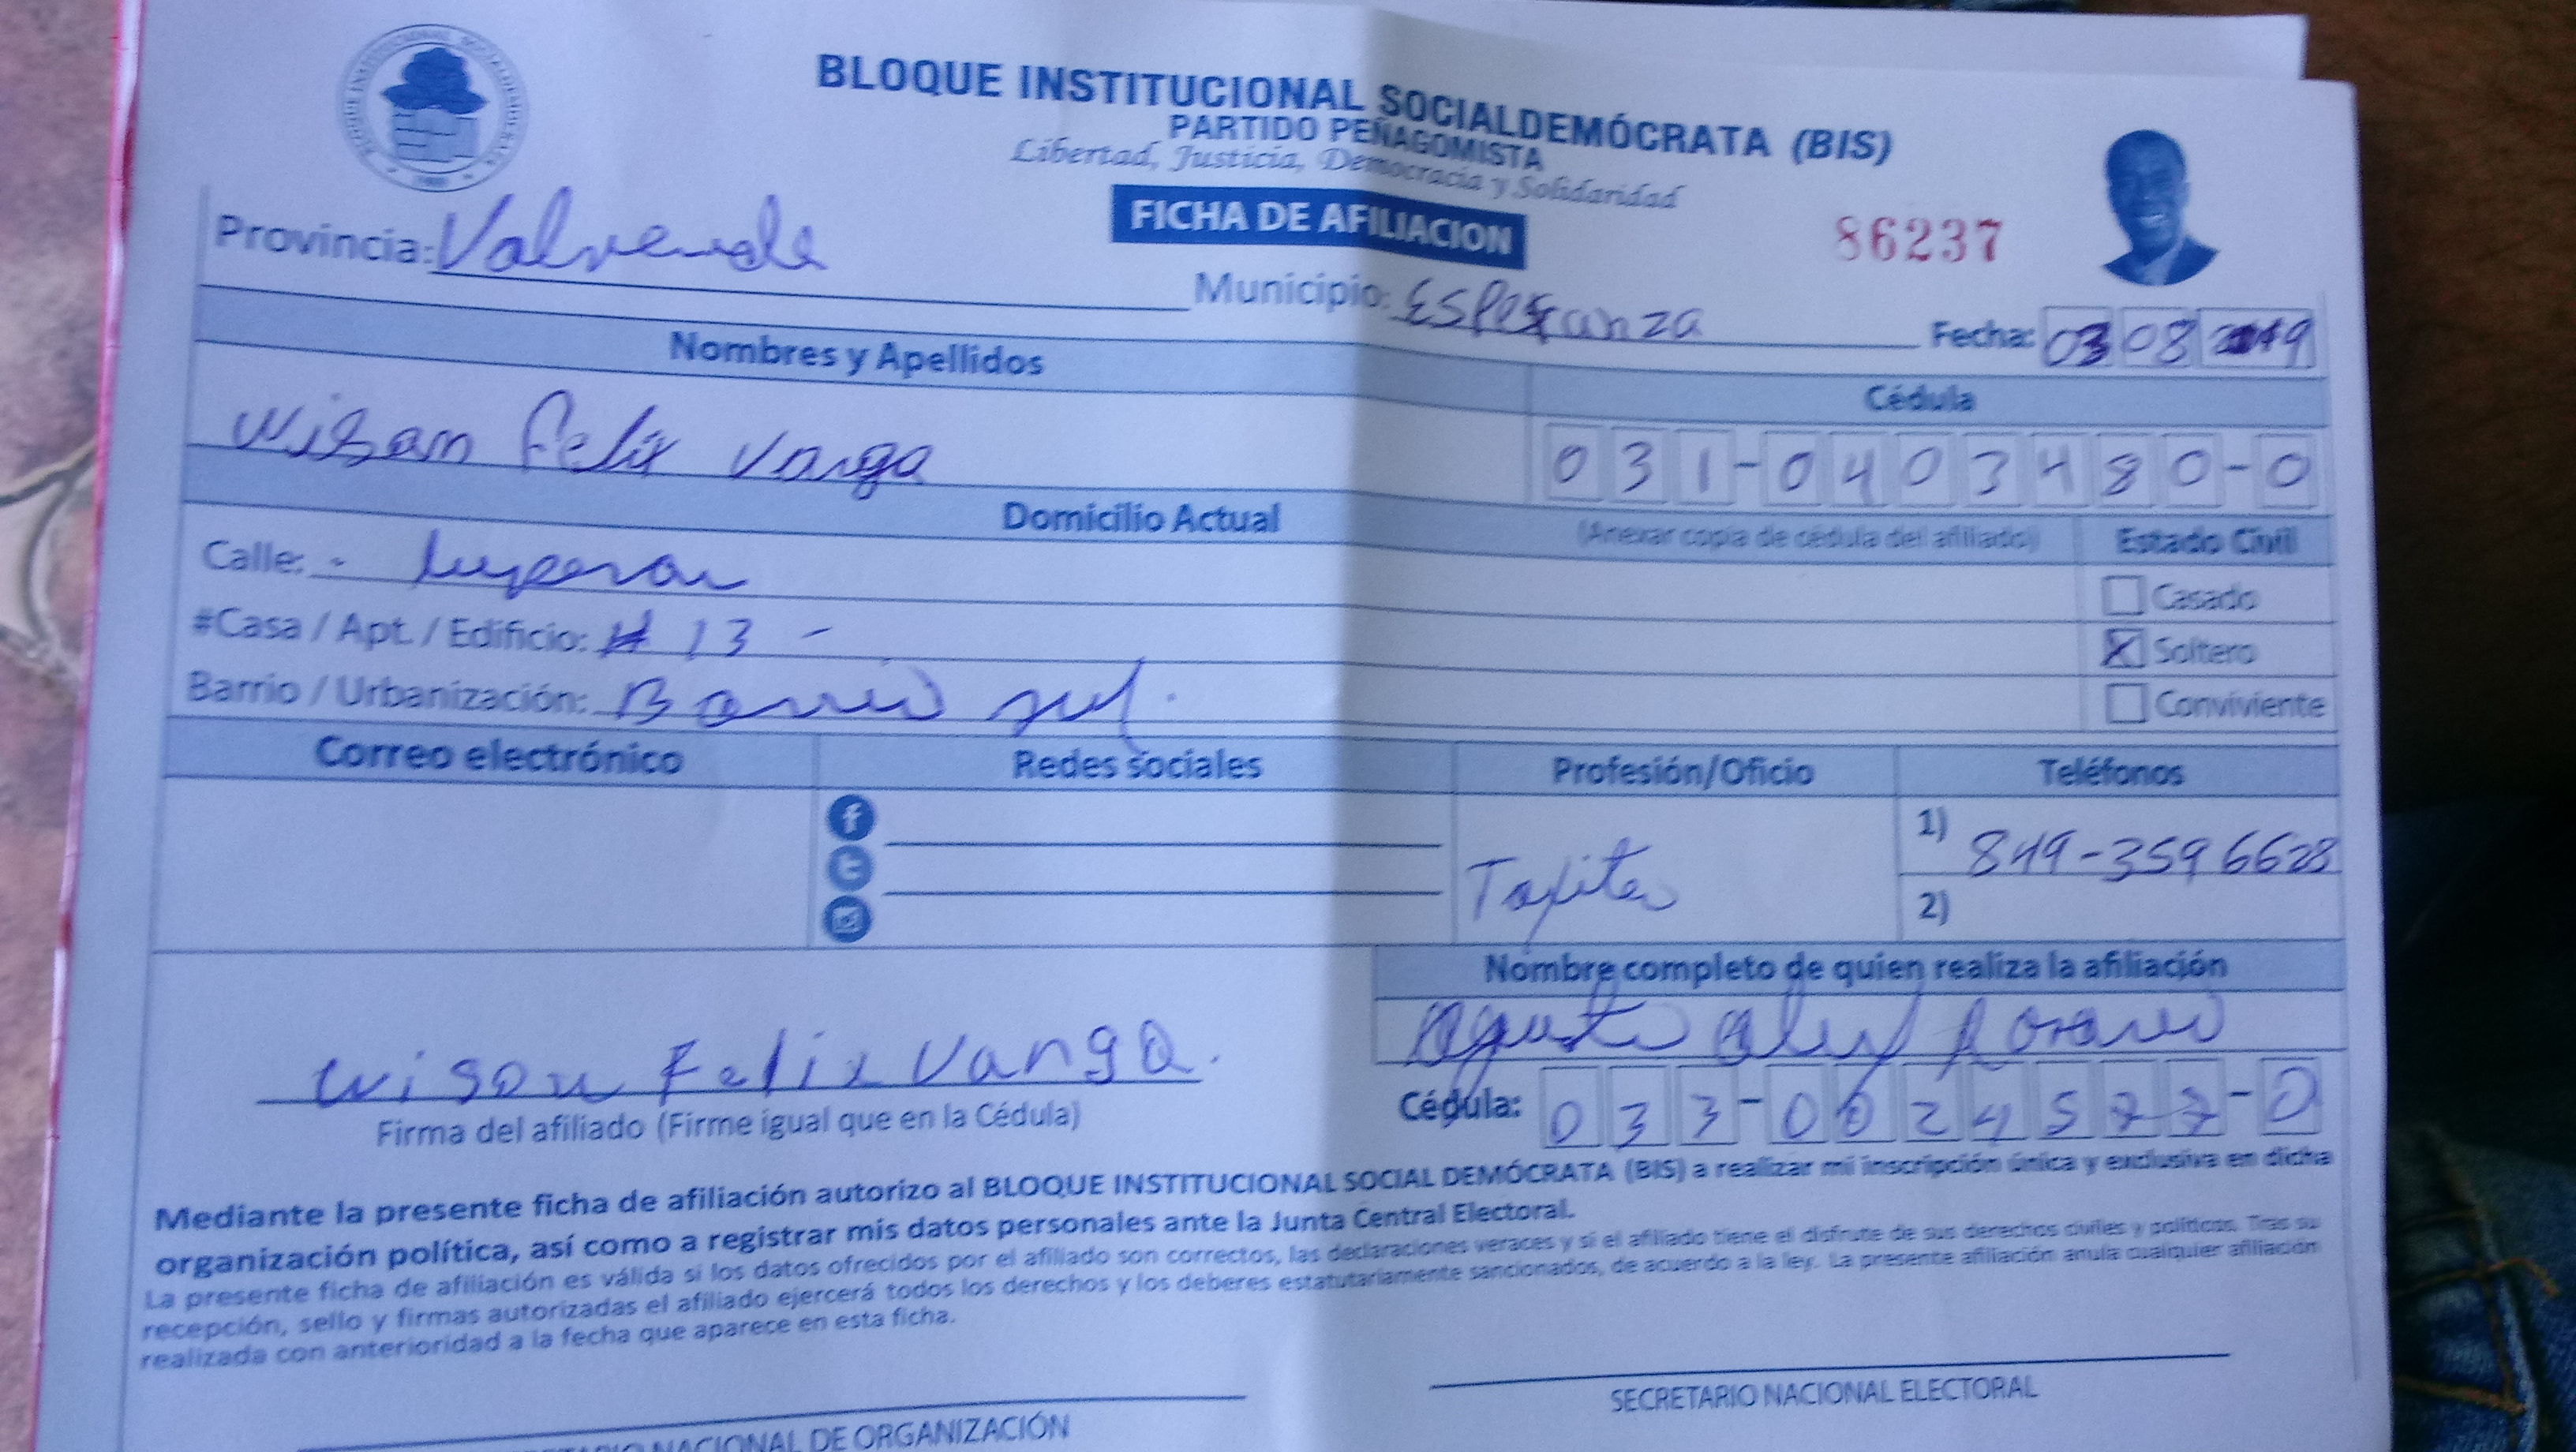 BLOQUE INSTITUCIONAL SOCIALDEMÓCRATA (BIS)
PARTIDO PEÑAGOMISTA
Libertad, Justicia, Democracia y Solidaridad
FICHA DE AFILIACION
86237
Provincia: Valverde
Municipio: Esperanza
Fecha: 03 08 2019
Nombres y Apellidos
Cédula
Wilson Felix Varga
031-0403480-0
Domicilio Actual
(Anexar copia de cédula del afiliado)
Estado Civil
Calle: - Luperon
Casado
#Casa / Apt. / Edificio: # 13 -
X Soltero
Barrio / Urbanización: Barrio sur.
Conviviente
Correo electrónico
Redes sociales
Profesión/Oficio
Teléfonos
1) 849-3596628
2)
Nombre completo de quien realiza la afiliación
Wison Felix Vanga.
Firma del afiliado (Firme igual que en la Cédula)
Cédula: 033-0024577-0
Mediante la presente ficha de afiliación autorizo al BLOQUE INSTITUCIONAL SOCIAL DEMÓCRATA (BIS) a realizar mi inscripción única y exclusiva en dicha
organización política, así como a registrar mis datos personales ante la Junta Central Electoral.
La presente ficha de afiliación es válida si los datos ofrecidos por el afiliado son correctos, las declaraciones veraces y si el afiliado tiene el disfrute de sus derechos civiles y políticos. Tras su
recepción, sello y firmas autorizadas el afiliado ejercerá todos los derechos y los deberes estatutariamente sancionados, de acuerdo a la ley. La presente afiliación anula cualquier afiliación
realizada con anterioridad a la fecha que aparece en esta ficha.
SECRETARIO NACIONAL ELECTORAL
NACIONAL DE ORGANIZACIÓN